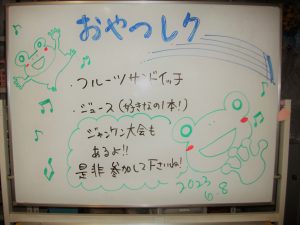 おやつレク
・フルーツサンドイッチ
・ジュース(好きなの1本!)
ジャンケン大会も
あるよ!!
是非参加して下さいね!
2023
6.8